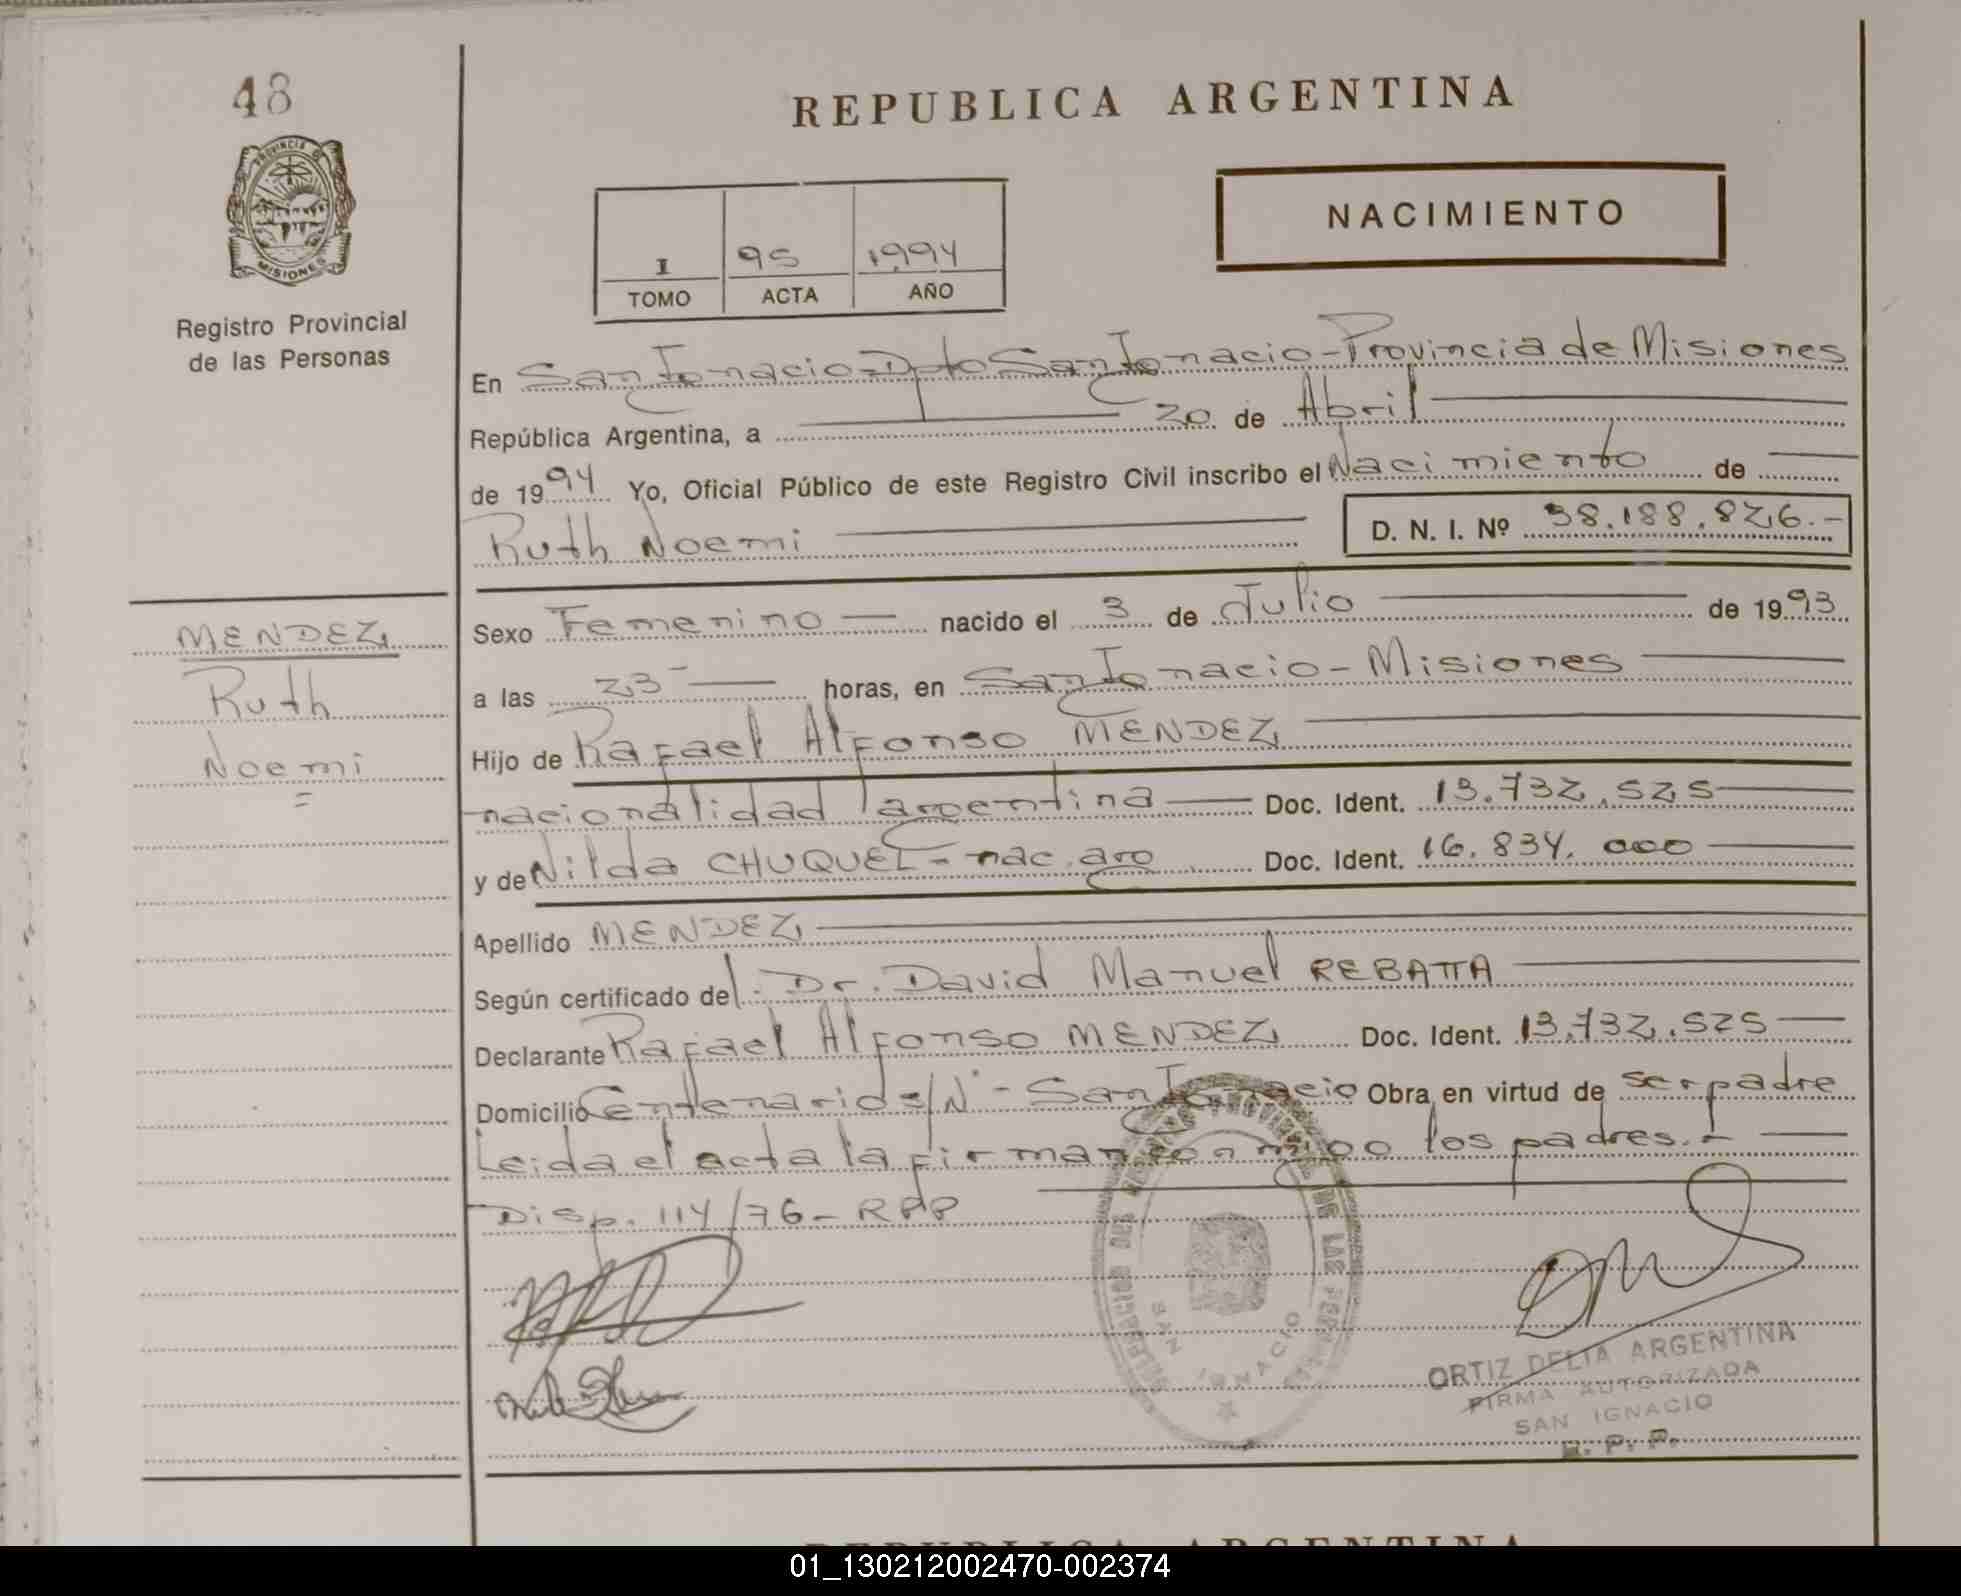 48
REPUBLICA ARGENTINA
PROVINCIA D
MISIONES
NACIMIENTO
I 95 1994
TOMO ACTA AÑO
Registro Provincial
de las Personas
En San Ignacio-Dpto San Ignacio-Provincia de Misiones
República Argentina, a 20 de Abril
de 1994 Yo, Oficial Público de este Registro Civil inscribo el Nacimiento de
Ruth Noemi D. N. I. Nº 38.188.826.-
MENDEZ
Ruth
Noemi
=
Sexo Femenino nacido el 3 de Julio de 1993
a las 23 horas, en San Ignacio-Misiones
Hijo de Rafael Alfonso MENDEZ
nacionalidad argentina Doc. Ident. 13.732.525
y de Nilda CHUQUEL-nac.arg Doc. Ident. 16.834.000
Apellido MENDEZ
Según certificado del. Dr. David Manuel REBATTA
Declarante Rafael Alfonso MENDEZ Doc. Ident. 13.732.525
Domicilio Centenario s/Nº-San Ignacio Obra en virtud de ser padre
Leida el acta la firman conmigo los padres.-
Disp. 114/76-RPP
SAN IGNACIO
ORTIZ DELIA ARGENTINA
FIRMA AUTORIZADA
SAN IGNACIO
R. P. P.
REPUBLICA ARGENTINA
01_130212002470-002374